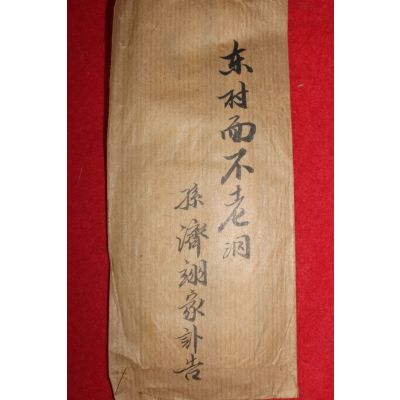 东村面不老洞
孫濟翊家訃告